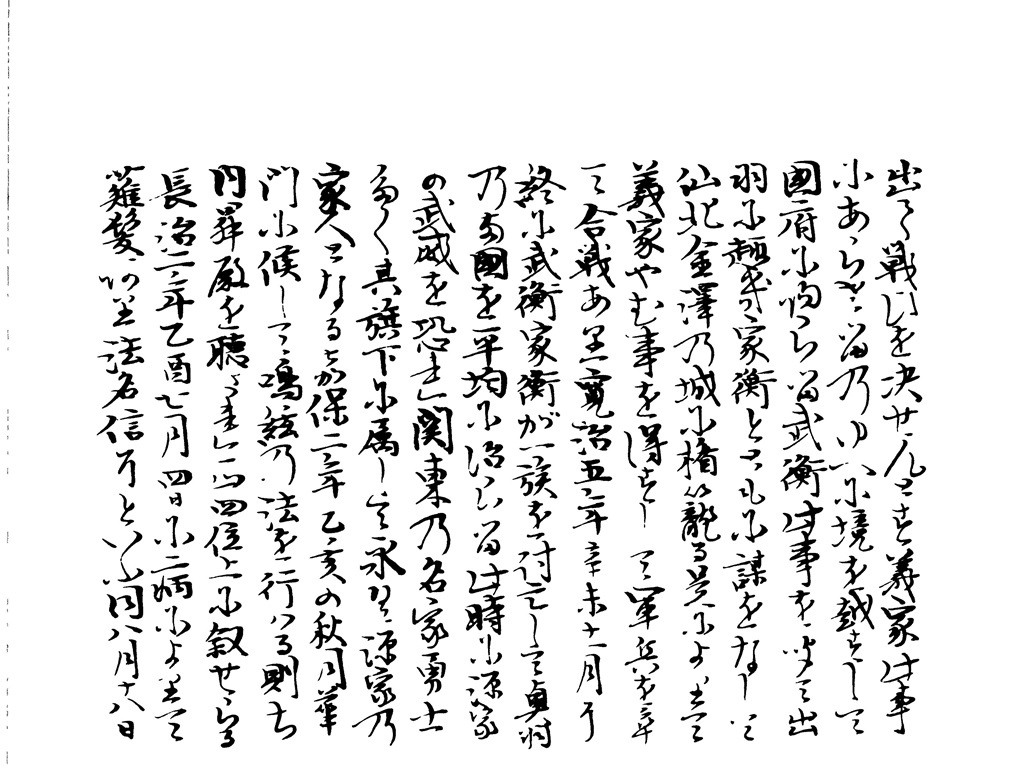 出て戦ひを決せんとす義家此事
にあらす留乃ゆへに境を越すして
國府に帰らる武衡此事を聞て出
羽に趣き家衡とともに謀をなして
仙北金澤乃城に楯籠る是によりて
義家やむ事を得すして軍兵を率
て合戦あり寛治五年辛未十一月
終に武衡家衡が一族を討亡して奥羽
乃両國を平均に治らる此時に源家
の武威を恐れ関東乃名家勇士
多く其旗下に属して永く源家乃
家人となる嘉保二年乙亥の秋月華
門に候して鳴弦乃法を行はる則ち
内昇殿を聴され正四位上に叙せらる
長治二年乙酉七月四日に病によりて
薙髪あり法名信了といふ同八月十八日